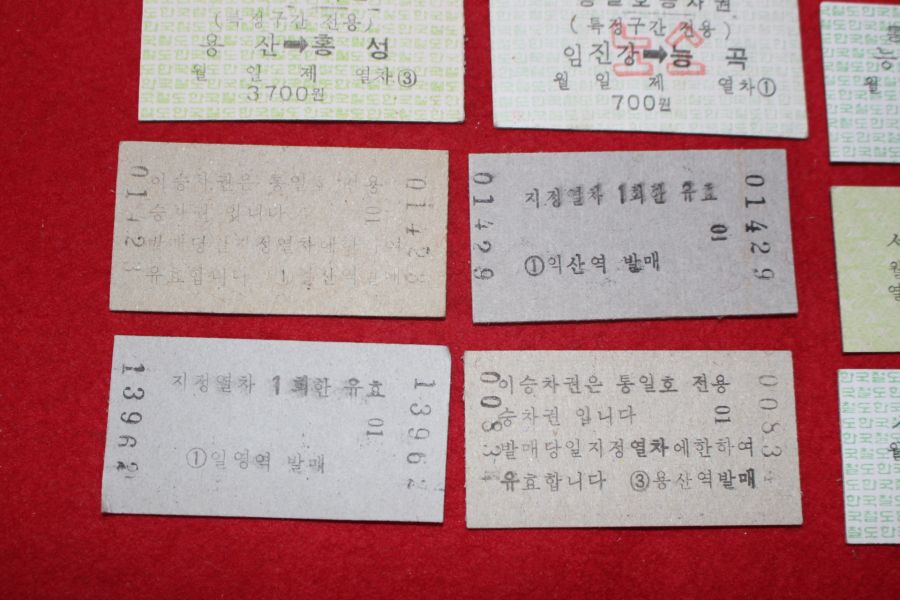 (특정구간 전용)
용 산➡홍 성
월 일 제 열차③
3700원
통일호승차권
(특정구간 전용)
임진강➡능 곡
월 일 제 열차①
700원
능
월
이승차권은 통일호 전용
승차권 입니다
01
유효합니다
지정열차 1회한 유효
01
①익산역 발매
01429
01429
지정열차 1회한 유효
01
①일영역 발매
13962
13962
이승차권은 통일호 전용
승차권 입니다
01
발매당일지정열차에한하여
유효합니다 ③용산역발매
0083
서
월
열
한국철도